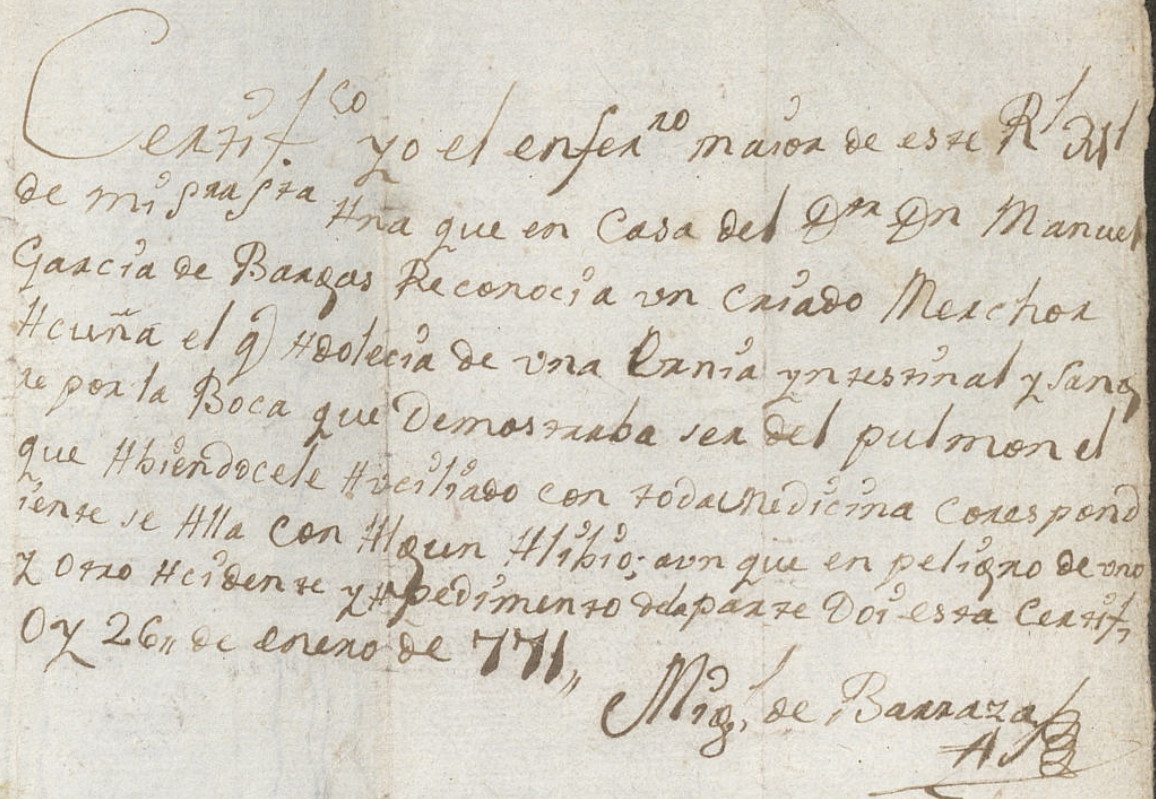 Certifco yo el enferro maior de este Rl
de mi sra sta Ana que en Casa del Dr Dn Manuel
Garcia de Bargas Reconocia vn criado Merchor
Acuña el q Adolecia de vna Ernia yntestinal y sang
re por la Boca que Demostraba ser del pulmon el
que Abiendocele Auciliado con toda Medicina Corespond
iente se Alla con Algun Alibio; avn que en peligro de vno
y otro Acidente y A pedimento dela parte Doi esta Certif.
Oy 26,, de enero de 771,,
Migl. de Barraza